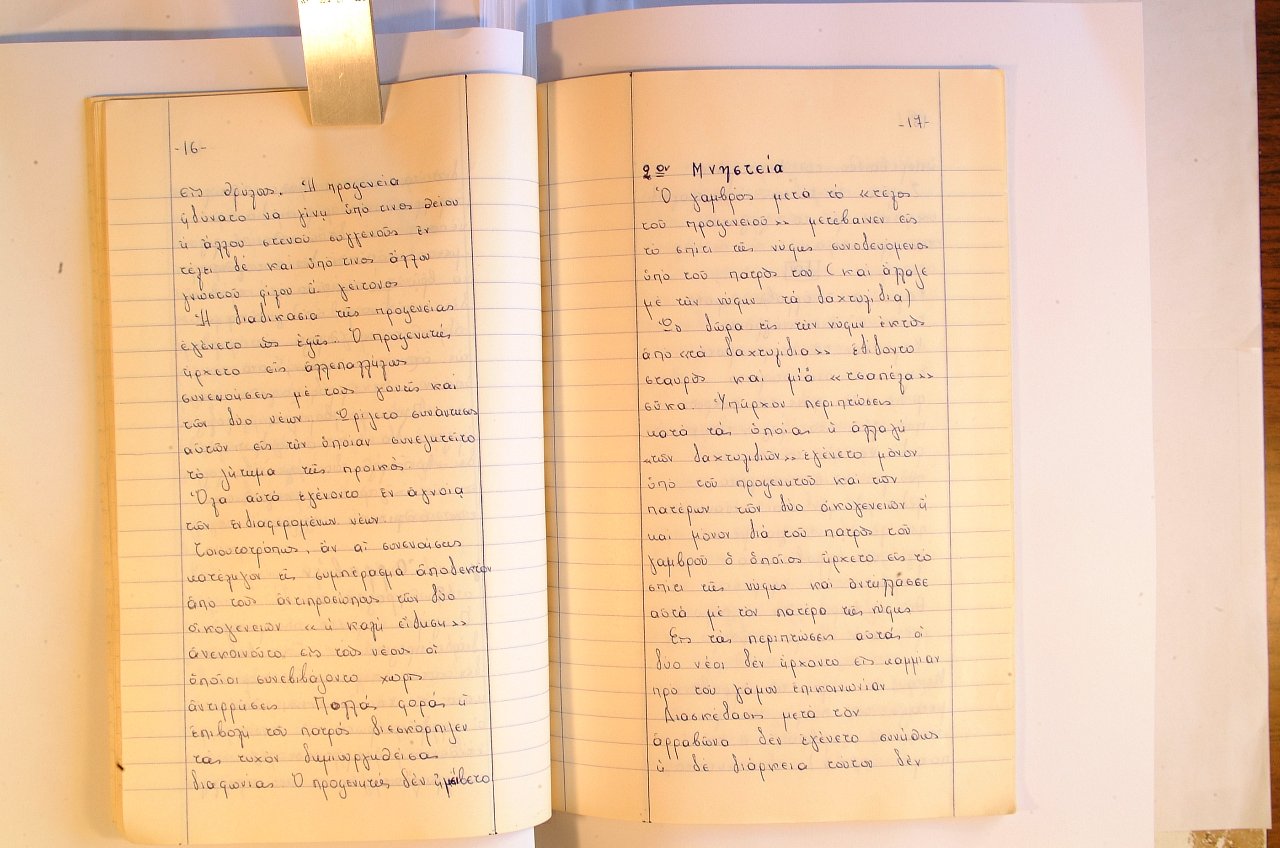 -16-
εἰς θρύλους. Ἡ προξενειά
ἠδύνατο νὰ γίνῃ ὑπό τινος θείου
ἢ ἄλλου στενοῦ συγγενοῦς ἐν
τέλει δὲ καὶ ὑπό τινος ἄλλου
γνωστοῦ φίλου ἢ γείτονος
Ἡ διαδικασία τῆς προξενειᾶς
ἐγένετο ὡς ἑξῆς: Ὁ προξενητής
ἤρχετο εἰς ἀλλεπαλλήλους
συνεννοήσεις μὲ τοὺς γονεῖς καὶ
τῶν δύο νέων. Ὡρίζετο συνάντησις
αὐτῶν εἰς τὴν ὁποίαν συνεζητεῖτο
τὸ ζήτημα τῆς προικὸς.
Ὅλα αὐτὰ ἐγένοντο ἐν ἀγνοίᾳ
τῶν ἐνδιαφερομένων νέων.
Τοιουτοτρόπως, ἂν αἱ συνεννοήσεις
κατέληγον εἰς συμπέρασμα ἀποδεκτὸν
ἀπὸ τοὺς ἀντιπροσώπους τῶν δύο
οἰκογενειῶν «ἡ καλὴ εἴδησις»
ἀνεκοινοῦτο εἰς τοὺς νέους οἱ
ὁποῖοι συνεβιβάζοντο χωρὶς
ἀντιρρήσεις Πολλὰς φορὰς ἡ
ἐπιβολὴ τοῦ πατρὸς διεσκόρπιζεν
τὰς τυχὸν δημιουργηθείσας
διαφωνίας Ὁ προξενητὴς δὲν ἠμείβετο
-17-
2ον Μνηστεία
Ὁ γαμβρὸς μετὰ τὸ «τέλος
τοῦ προξενειοῦ» μετέβαινεν εἰς
τὸ σπίτι τῆς νύφης συνοδευόμενος
ὑπὸ τοῦ πατρὸς του (καὶ ἄλλαζε
μὲ τὴν νύφην τὰ δαχτυλίδια)
Ὡς δῶρα εἰς τὴν νύφην ἐκτὸς
ἀπὸ «τὰ δαχτυλίδια» ἐδίδοντο
σταυρὸς καὶ μιὰ «τσαπέλα»
σῦκα. Ὑπῆρχον περιπτώσεις
κατὰ τὰς ὁποίας ἡ ἀλλαγὴ
«τῶν δαχτυλιδιῶν» ἐγένετο μόνον
ὑπὸ τοῦ προξενητοῦ καὶ τῶν
πατέρων τῶν δύο οἰκογενειῶν ἢ
καὶ μόνον διὰ τοῦ πατρὸς τοῦ
γαμβροῦ ὁ ὁποῖος ἤρχετο εἰς τὸ
σπίτι τῆς νύφης καὶ ἀντήλλασσε
αὐτὰ μὲ τὸν πατέρα τῆς νύφης
Εἰς τὰς περιπτώσεις αὐτὰς οἱ
δύο νέοι δὲν ἤρχοντο εἰς καμμίαν
πρὸ τοῦ γάμου ἐπικοινωνίαν
Διασκέδασις μετὰ τὸν
ἀρραβῶνα δὲν ἐγένετο συνήθως
ἡ δὲ διάρκεια τούτου δὲν